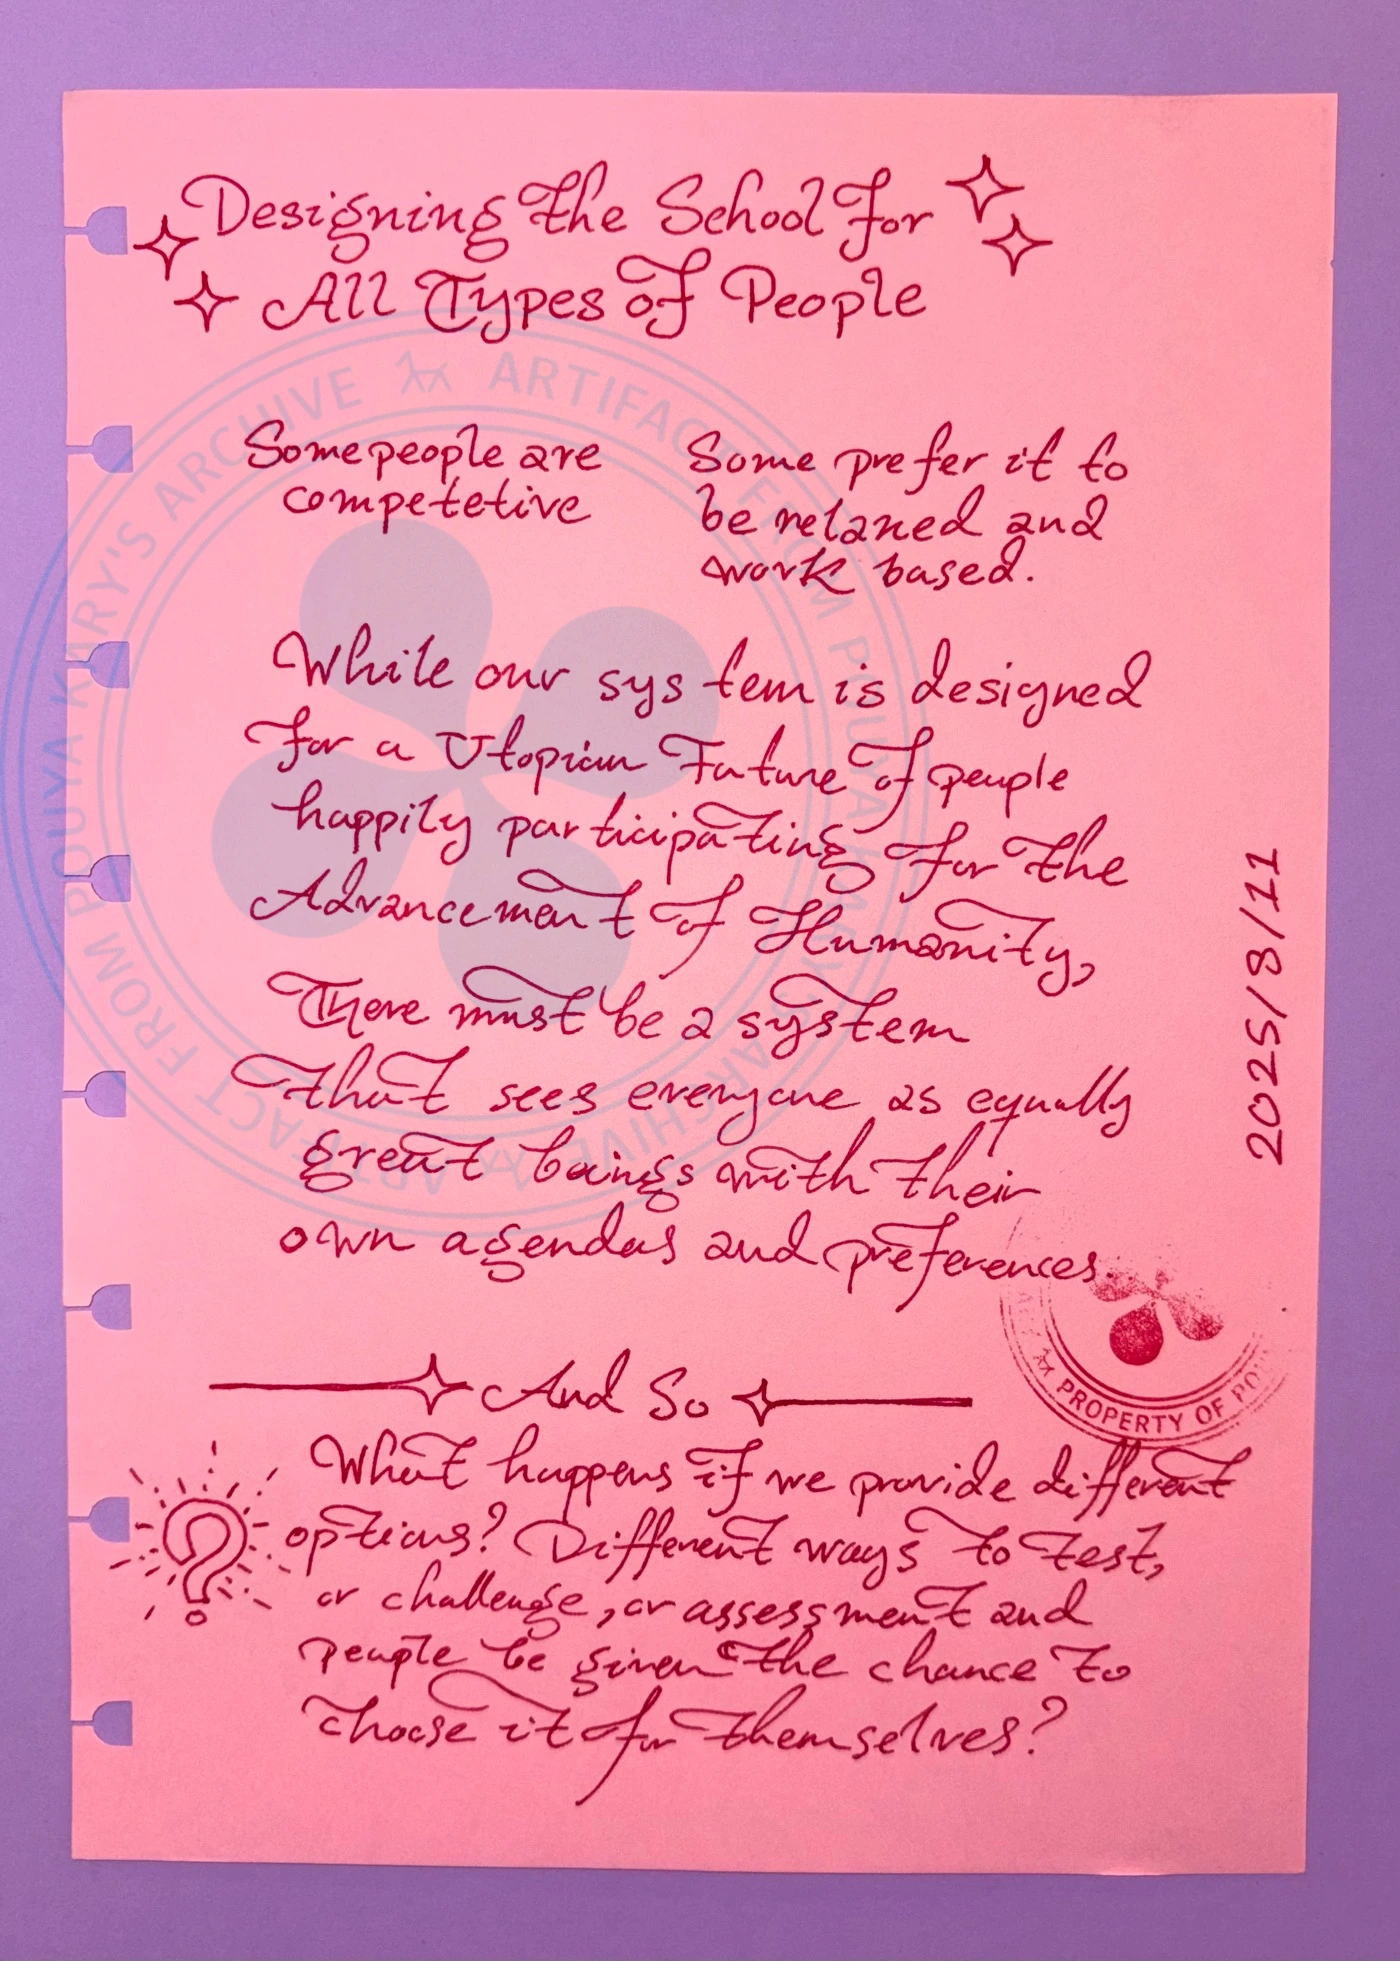 Designing The School For
All Types of People
Some people are
competetive
Some prefer it to
be relaxed and
work based.
While our system is designed
for a Utopian Future of people
happily participating for the
Advancement of Humanity,
There must be a system
that sees everyone as equally
great beings with their
own agendas and preferences.
And So
What happens if we provide different
options? Different ways to test,
or challenge, or assessment and
people be given the chance to
choose it for themselves?
2025/8/11
PROPERTY OF
ARTIFACT FROM POUYA KARY'S ARCHIVE
ARTIFACT FROM POUYA KARY'S ARCHIVE